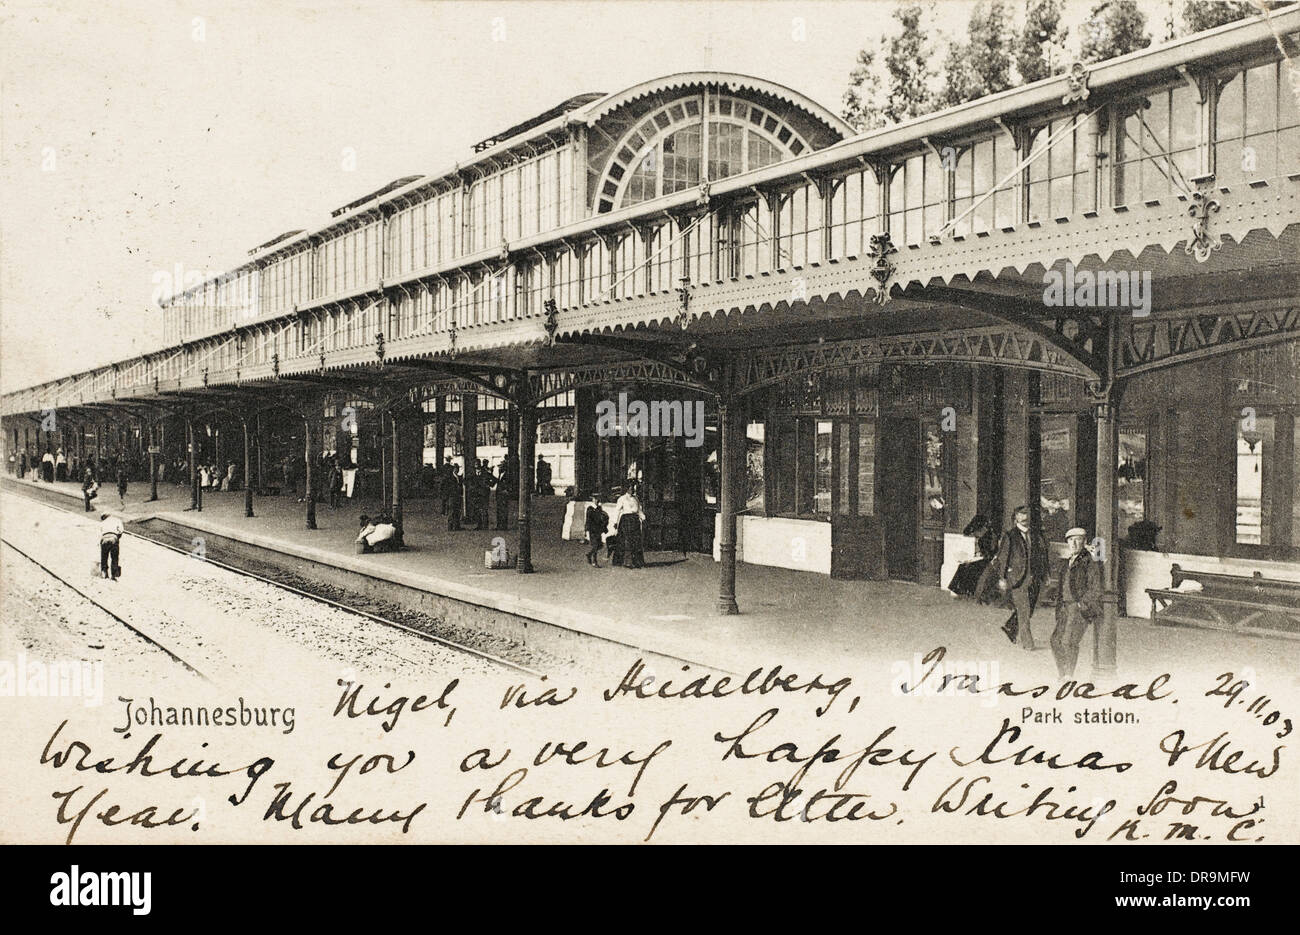 alamy
Nigel, via Heidelberg, Transvaal. 29.11.03
Johannesburg
Park station.
Wishing you a very happy Xmas & New
Year. Many thanks for letter. Writing Soon,
K. M. C.
alamy
Image ID: DR9MFW
www.alamy.com